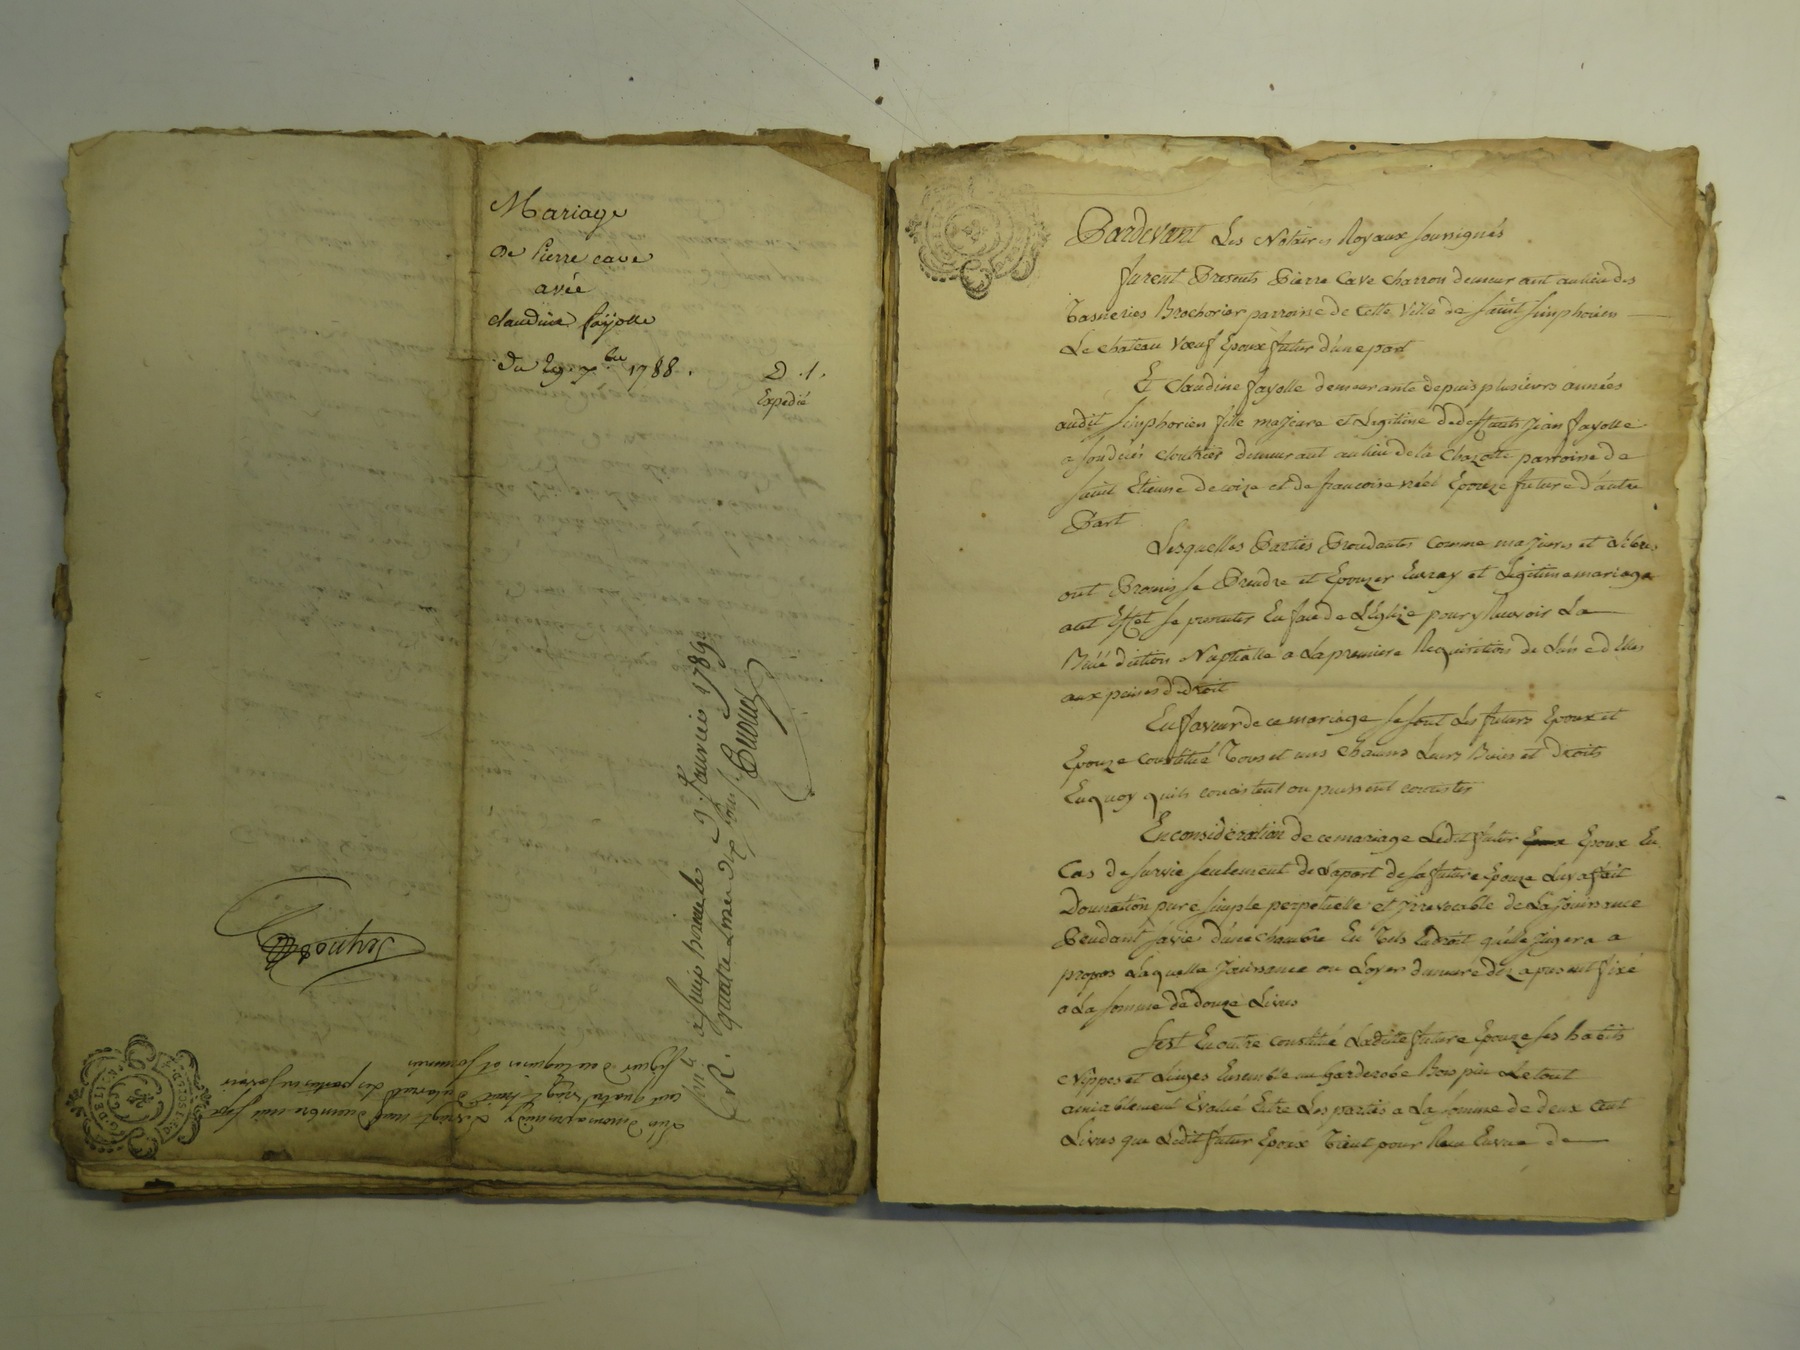 Mariage
De Pierre cave
avéc
claudine fayolle
Du 29 Xbre 1788.
D. 1.
Expedié
a simphorien le 9 Janvier 1789
R. quatre livres dix sols
cent quatre vingt huit
Pardevant Les Notaires Royaux soussignés
furent Presents Pierre Cave charron demeurant au lieu des
Tasneries Brochorier parroisse de Cette Ville de saint simphorien
Le chateau Vœuf Epoux futur d'une part
Et Claudine fayolle demeurante depuis plusieurs années
audit simphorien fille majeure et Legitime de deffunts jean fayolle
demeurant au lieu de la Chazotte parroisse de
saint Etienne de coize et de francoise néel Epouze future d'autre
Part
Lesquelles Parties Proudantes comme majeures et Libres
ont Promis se Prendre et Epouzer En vray et Legitime mariage
a cet Effet se presenter En face de L'Eglize pour y Recevoir La
Bénédiction Nuptialle a La premiere Requisition de L'une d'Elles
aux peines de droit
En faveur de ce mariage se sont Les futurs Epoux et
Epouze Constitué Tous et uns chacuns Leurs Biens et Droits
En quoy quils concistent ou puissent concister
En considération de ce mariage Ledit futur Epoux Epoux En
Cas de survie seulement de La part de sa future Epouze Luy a fait
Donnation pure simple perpetuelle et jrrevocable de La jouissance
Pendant sa vie d'une chambre En Tels Endroit qu'elle jugera a
propos Laquelle jouissance ou Loyer demeure dez a present fixé
a La somme de douze Livres
sest En outre constitué Laditte future Epouze ses habits
Nippes et Linges Ensemble un garderobe Bois pin Le tout
amiablement Evalué Entre Les parties a La somme de deux Cent
Livres que Ledit futur Epoux Tient pour Reçu En vue de